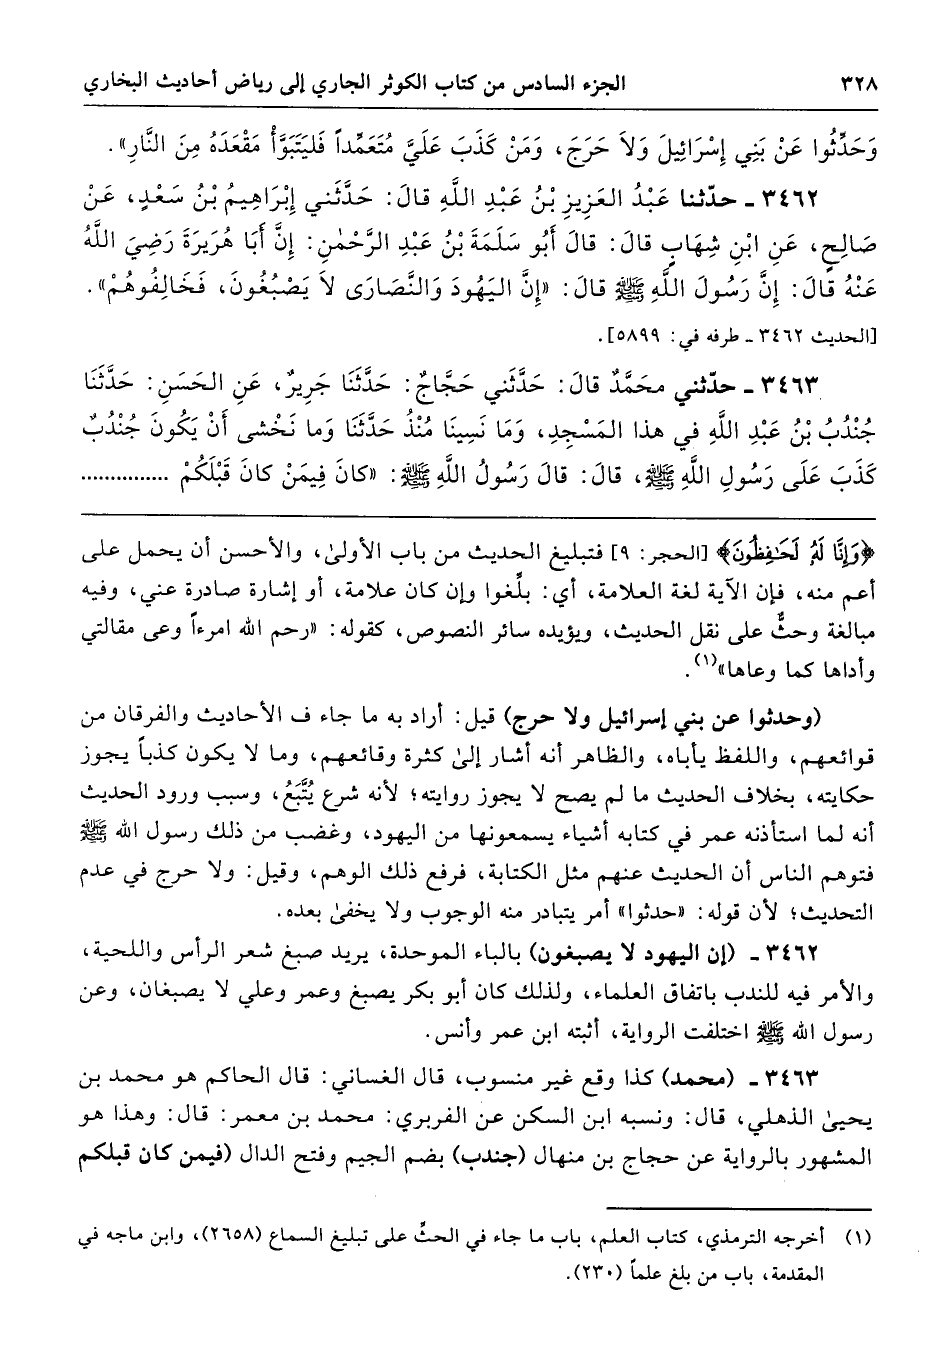 ٣٢٨ الجزء السادس من كتاب الكوثر الجاري إلى رياض أحاديث البخاري
وَحَدِّثُوا عَنْ بَنِي إِسْرَائِيلَ وَلاَ حَرَجَ، وَمَنْ كَذَبَ عَلَيَّ مُتَعَمِّداً فَليَتَبَوَّأْ مَقْعَدَهُ مِنَ النَّارِ».
٣٤٦٢ ـ حدّثنا عَبْدُ العَزِيزِ بْنُ عَبْدِ اللَّهِ قالَ: حَدَّثَني إِبْرَاهِيمُ بْنُ سَعْدٍ، عَنْ
صَالِحٍ، عَنِ ابْنِ شِهَابٍ قالَ: قالَ أَبُو سَلَمَةَ بْنُ عَبْدِ الرَّحْمٰنِ: إِنَّ أَبَا هُرَيرَةَ رَضِيَ اللَّهُ
عَنْهُ قالَ: إِنَّ رَسُولَ اللَّهِ ﷺ قالَ: «إِنَّ اليَهُودَ وَالنَّصَارَى لاَ يَصْبُغُونَ، فَخَالِفُوهُمْ».
[الحديث ٣٤٦٢ ـ طرفه في: ٥٨٩٩].
٣٤٦٣ ـ حدّثني محَمَّدٌ قالَ: حَدَّثَني حَجَّاجٌ: حَدَّثَنَا جَرِيرٌ، عَنِ الحَسَنِ: حَدَّثَنَا
جُنْدُبُ بْنُ عَبْدِ اللَّهِ في هذا المَسْجِدِ، وَمَا نَسِينَا مُنْذُ حَدَّثَنَا وَما نَخْشى أَنْ يَكُونَ جُنْدُبٌ
كَذَبَ عَلَى رَسُولِ اللَّهِ ﷺ، قالَ: قالَ رَسُولُ اللَّهِ ﷺ: «كانَ فِيمَنْ كانَ قَبْلَكُمْ ...............
﴿وَإِنَّا لَهُ لَحَٰفِظُونَ﴾ [الحجر: ٩] فتبليغ الحديث من باب الأولىٰ، والأحسن أن يحمل على
أعم منه، فإن الآية لغة العلامة، أي: بلِّغوا وإن كان علامة، أو إشارة صادرة عني، وفيه
مبالغة وحثٌّ على نقل الحديث، ويؤيده سائر النصوص، كقوله: «رحم الله امرءاً وعى مقالتي
وأداها كما وعاها»(١).
(وحدثوا عن بني إسرائيل ولا حرج) قيل: أراد به ما جاء ف الأحاديث والفرقان من
قوائعهم، واللفظ يأباه، والظاهر أنه أشار إلىٰ كثرة وقائعهم، وما لا يكون كذباً يجوز
حكايته، بخلاف الحديث ما لم يصح لا يجوز روايته؛ لأنه شرع يُتَّبَعُ، وسبب ورود الحديث
أنه لما استأذنه عمر في كتابه أشياء يسمعونها من اليهود، وغضب من ذلك رسول الله ﷺ
فتوهم الناس أن الحديث عنهم مثل الكتابة، فرفع ذلك الوهم، وقيل: ولا حرج في عدم
التحديث؛ لأن قوله: «حدثوا» أمر يتبادر منه الوجوب ولا يخفىٰ بعده.
٣٤٦٢ ـ (إن اليهود لا يصبغون) بالباء الموحدة، يريد صبغ شعر الرأس واللحية،
والأمر فيه للندب باتفاق العلماء، ولذلك كان أبو بكر يصبغ وعمر وعلي لا يصبغان، وعن
رسول الله ﷺ اختلفت الرواية، أثبته ابن عمر وأنس.
٣٤٦٣ ـ (محمد) كذا وقع غير منسوب، قال الغساني: قال الحاكم هو محمد بن
يحيىٰ الذهلي، قال: ونسبه ابن السكن عن الفربري: محمد بن معمر: قال: وهذا هو
المشهور بالرواية عن حجاج بن منهال (جندب) بضم الجيم وفتح الدال (فيمن كان قبلكم
(١) أخرجه الترمذي، كتاب العلم، باب ما جاء في الحثِّ على تبليغ السماع (٢٦٥٨)، وابن ماجه في
المقدمة، باب من بلغ علماً (٢٣٠).